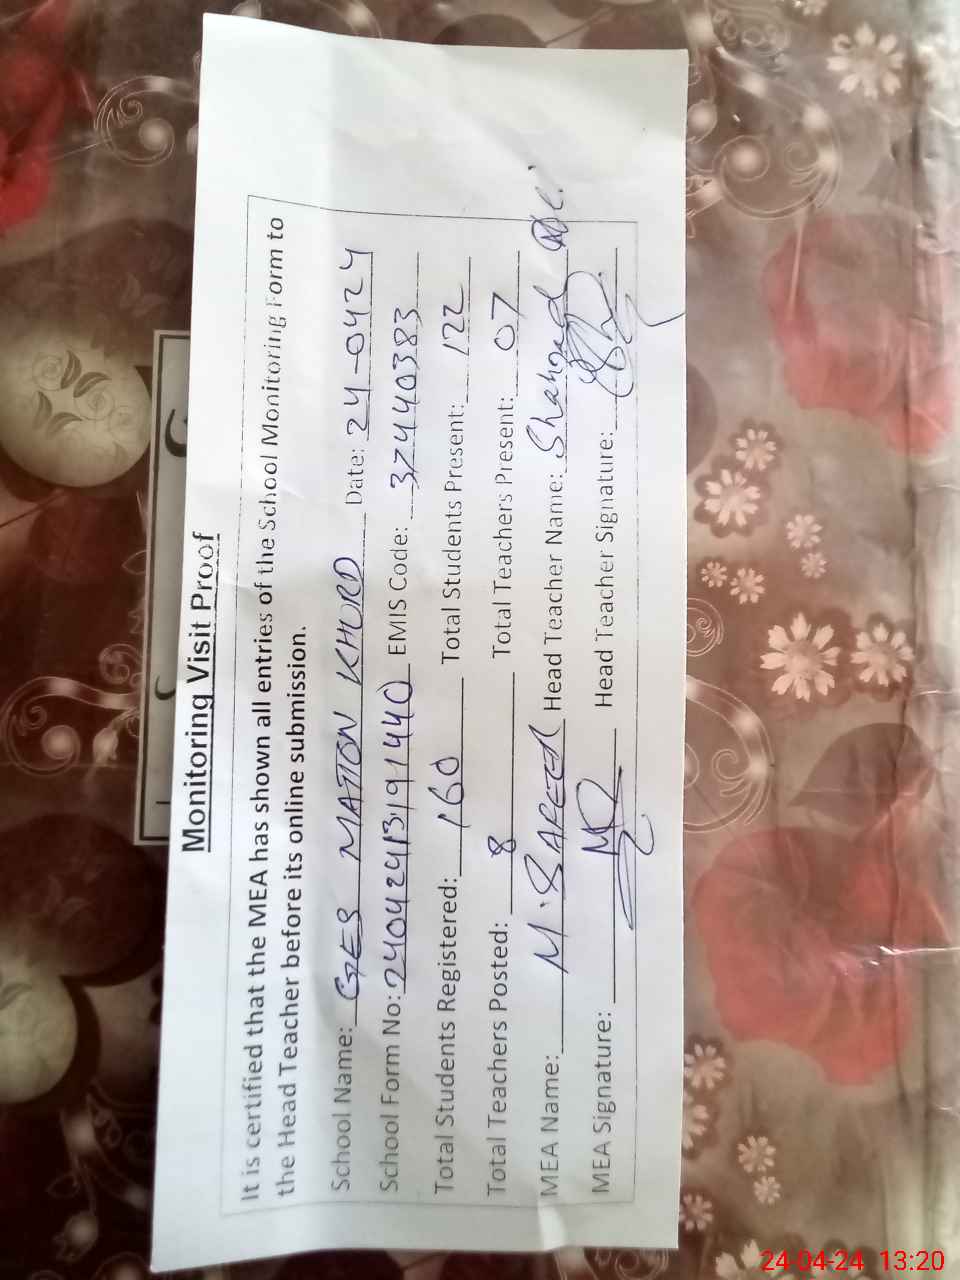 Monitoring Visit Proof
It is certified that the MEA has shown all entries of the School Monitoring Form to
the Head Teacher before its online submission.
School Name: GES MATTON KHURD Date: 24-0424
School Form No: 24042413191440 EMIS Code: 37440383
Total Students Registered: 160 Total Students Present: 122
Total Teachers Posted: 8 Total Teachers Present: 07
MEA Name: M. SAFEER Head Teacher Name:
MEA Signature: Head Teacher Signature:
24-04-24 13:20